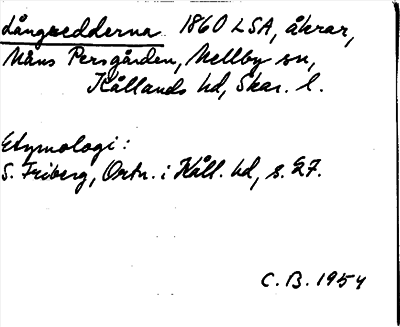 Långredderna 1860 LSA, åkrar,
Måns Persgården, Mellby sn,
Kållands hd, Skar. l.
Etymologi:
S. Friberg, Ortn. i Kåll. hd, s. 27.
C.B. 1954